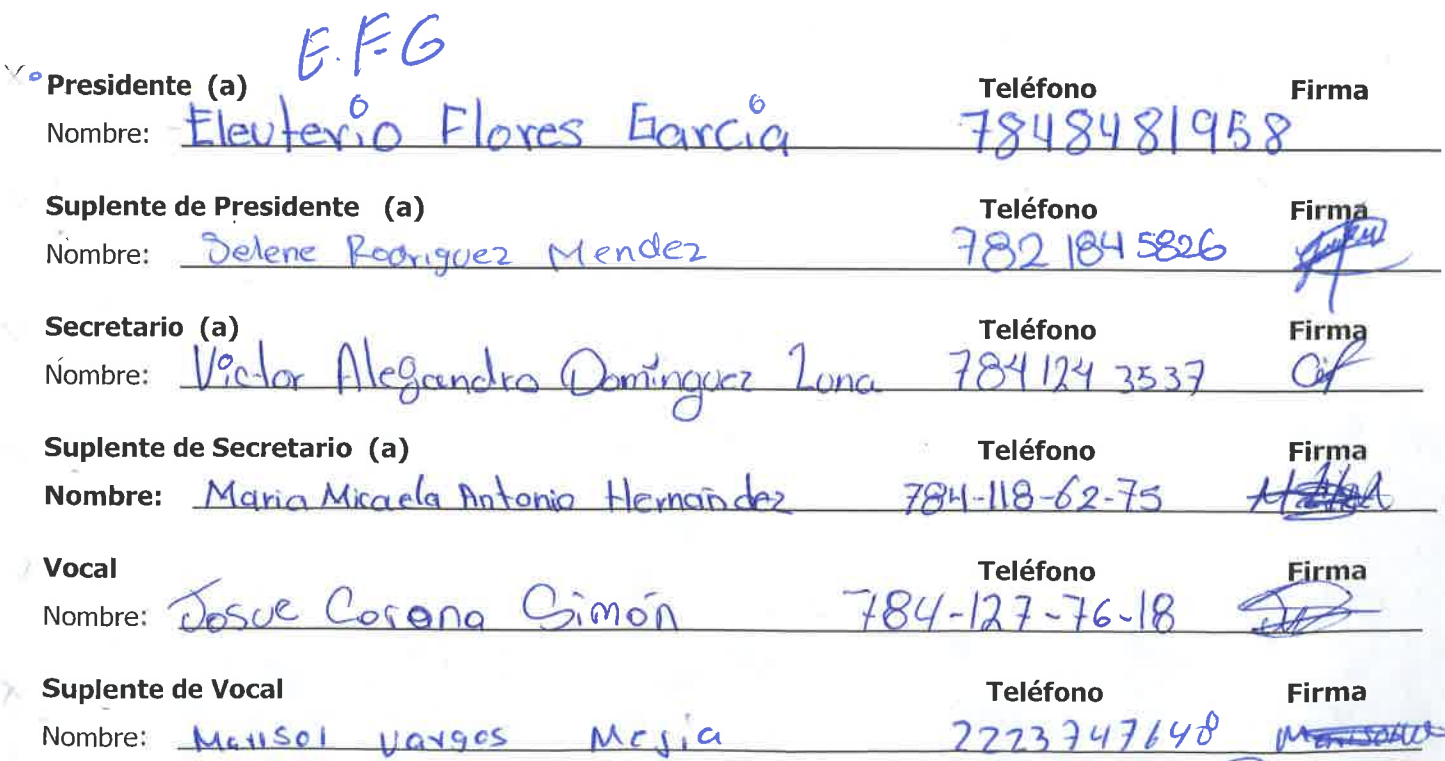 E.F.G
Presidente (a) Teléfono Firma
Nombre: Eleuterio Flores Garcia 7848481958
Suplente de Presidente (a) Teléfono Firma
Nombre: Selene Rodriguez Mendez 782 184 5826
Secretario (a) Teléfono Firma
Nombre: Victor Alegandro Domínguez Luna 784 124 3537
Suplente de Secretario (a) Teléfono Firma
Nombre: Maria Micaela Antonio Hernández 784-118-62-75
Vocal Teléfono Firma
Nombre: Josue Corona Simón 784-127-76-18
Suplente de Vocal Teléfono Firma
Nombre: Marisol Vargas Mejia 2223747648